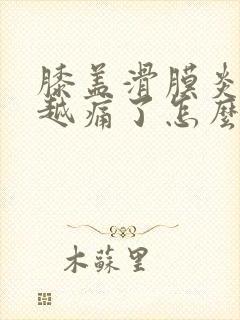 膝盖滑膜炎
越痛了怎麼
木蘇里